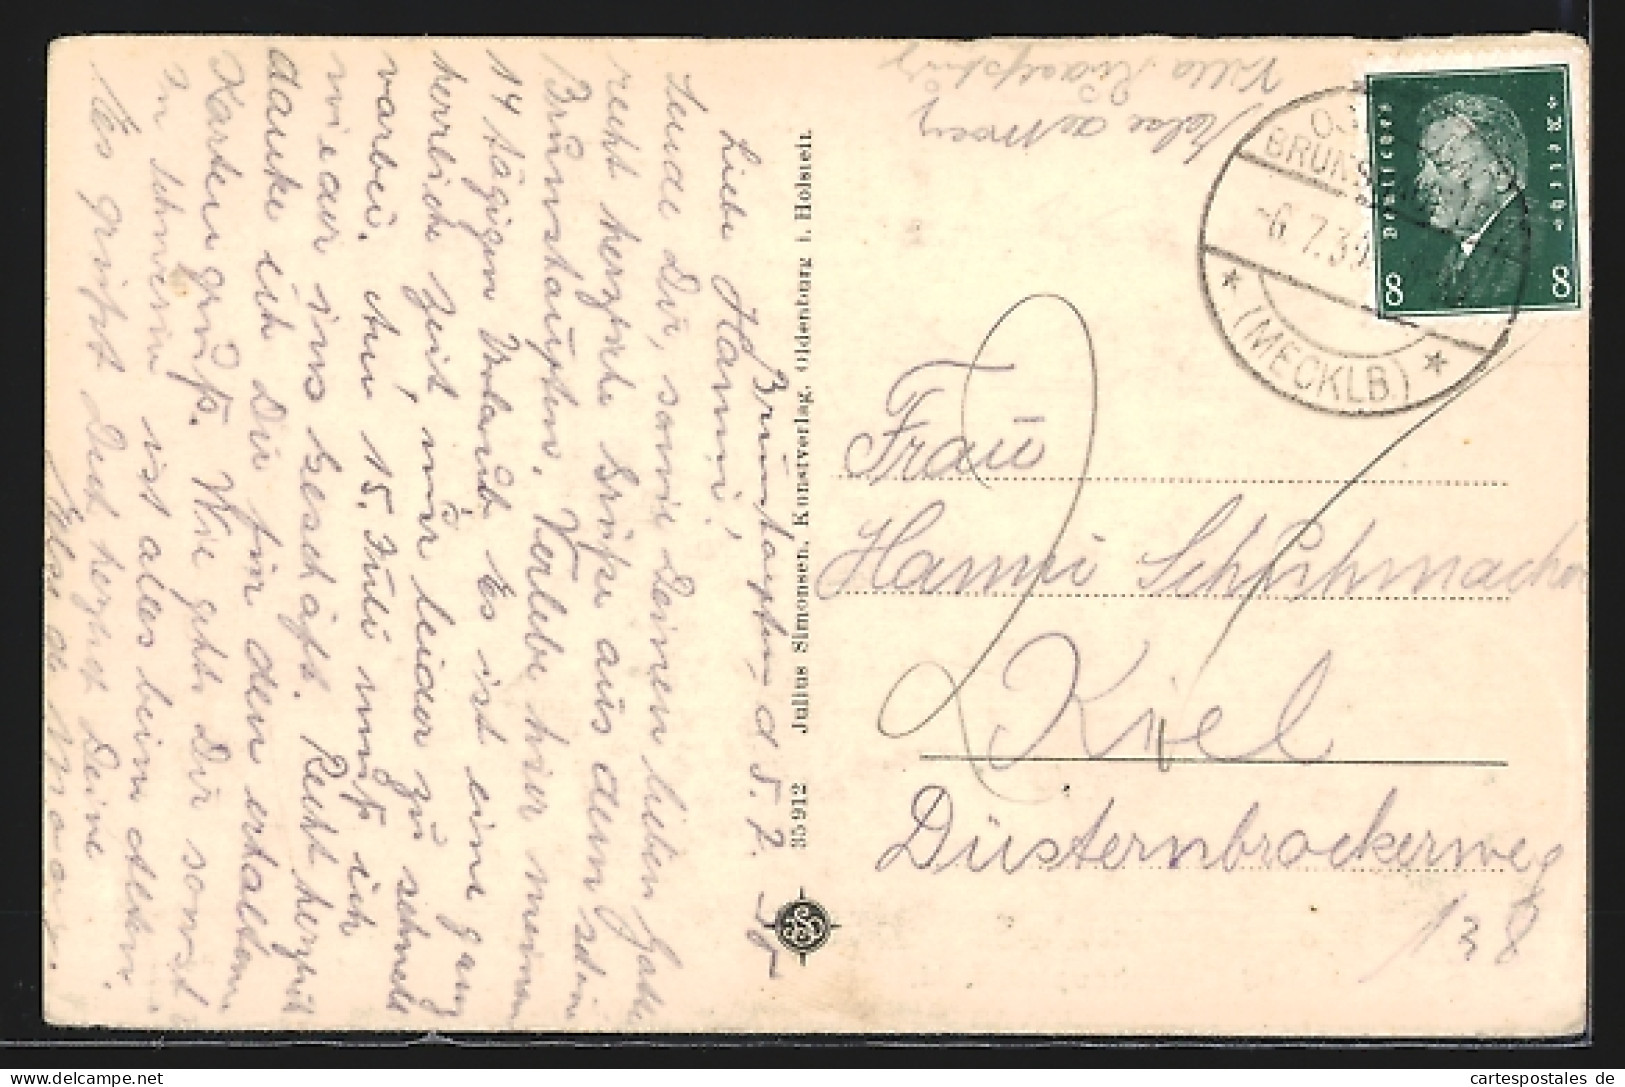 Liebe Hanni,
Brunshaupten d 5. 7. 30
Sende Dir, sowie Deinen lieben
recht herzhl. Grüße aus dem
Brunshaupten. Verlebe hier meinen
14 tägigen Urlaub. Es ist eine ganz
herrliche Zeit, nur leider zu schnell
vorbei. Am 15. Juli muß ich
wieder ins Geschäft. Recht herzlich
danke ich Dir für den erhaltenen
Kartengruß. Wie geht's Dir sonst
In Schwerin ist alles beim alten.
Es grüßt Dich herzlich Deine
35912 Julius Simonsen, Kunstverlag, Oldenburg i. Holstein
Villa
BRUNSHAUPTEN
-6.7.30
* (MECKLB.) *
Deutsches Reich
8 8
Frau
Hanni Schuhmacher
Kiel
Düsternbrockerweg
138
cartespostales de